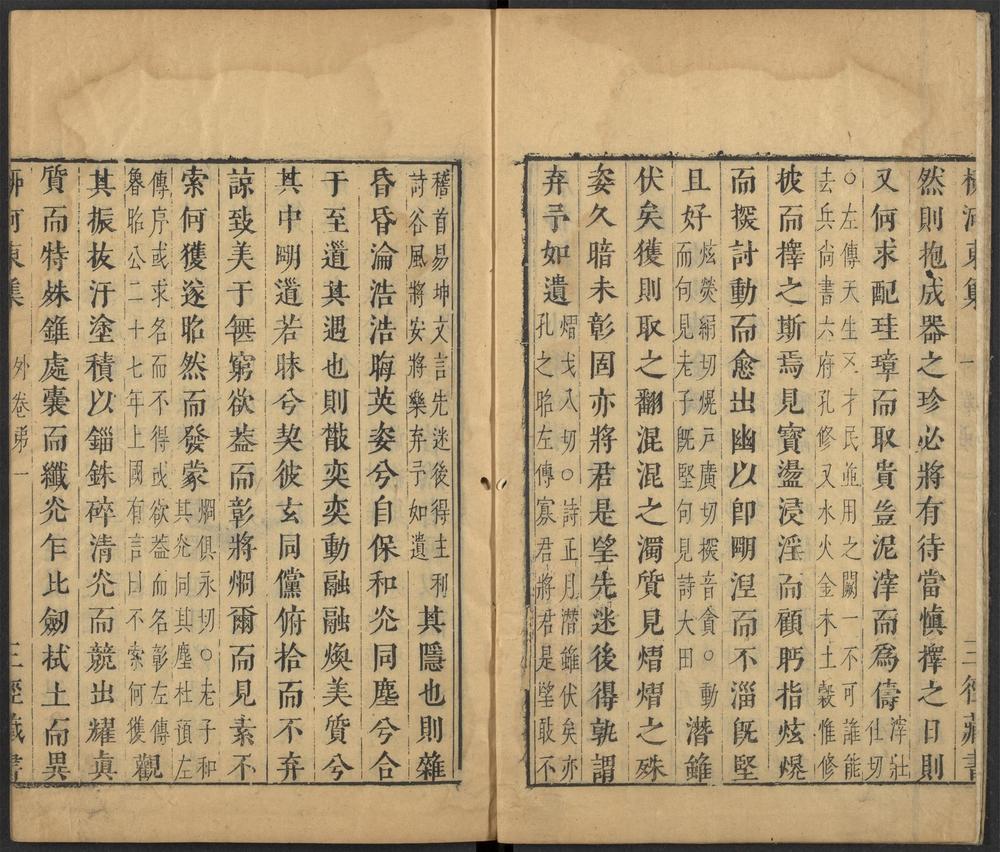 柳河東集 一 三徑藏書
然則抱成器之珍必將有待當愼擇之日則
又何求配珪璋而取貴豈泥滓而爲儔滓壯仕切
○左傳天生五才民並用之闕一不可誰能去兵尙書六府孔修又水火金木土穀惟修
披而擇之斯焉見寶盪浸淫而顧眄指炫熀
而探討動而愈出幽以卽朙涅而不淄旣堅
且好炫熒絹切熀戸廣切探音貪○動而何見老子旣堅何見詩大田潛雖
伏矣獲則取之翻混混之濁質見熠熠之殊
姿久暗未彰固亦將君是望先迷後得孰謂
弃予如遺熠戈入切○詩正月潛雖伏矣亦孔之昭左傳寡君將君是望敢不
稽首易坤文言先迷後得主利詩谷風將安將樂弃予如遺其隱也則雜
昏昏淪浩浩晦英姿兮自保和光同塵兮合
于至道其遇也則散奕奕動融融煥美質兮
其中朙道若昧兮契彼玄同儻俯拾而不弃
諒致美于無窮欲蓋而彰將烱爾而見素不
索何獲遂昭然而發蒙烱俱永切○老子和其光同其塵杜預左
傳序或求名而不得或欲蓋而名彰左傳魯昭公二十七年上國有言曰不索何獲觀
其振拔汙塗積以錙銖碎清光而競出耀眞
質而特殊錐處囊而纖光乍比劒拭土而異
柳河東集 外卷第一 三徑藏書